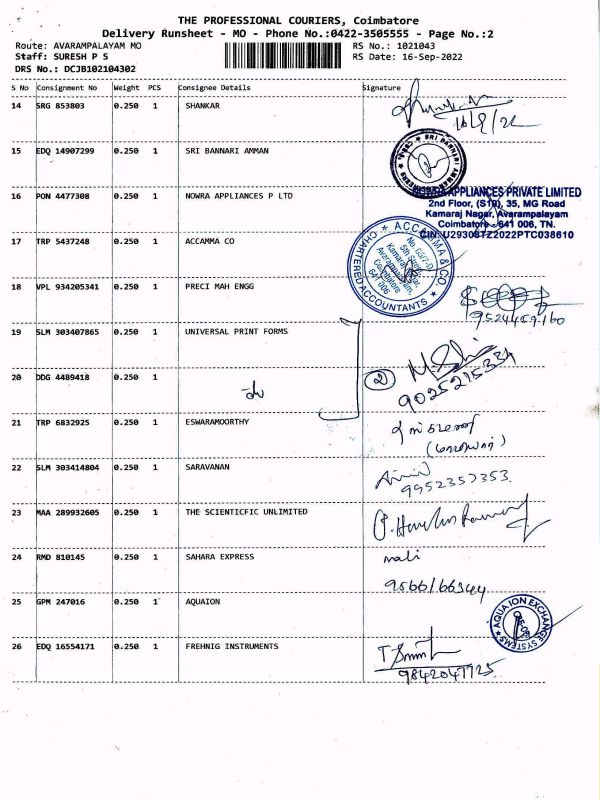 THE PROFESSIONAL COURIERS, Coimbatore
Delivery Runsheet - MO - Phone No.:0422-3505555 - Page No.:2
Route: AVARAMPALAYAM MO
RS No.: 1021043
Staff: SURESH P S
RS Date: 16-Sep-2022
DRS No.: DCJB102104302
S No Consignment No Weight PCS Consignee Details Signature
14 SRG 853803 0.250 1 SHANKAR
16/9/22
15 EDQ 14907299 0.250 1 SRI BANNARI AMMAN
SRI BANNARI AMMAN
16 PON 4477308 0.250 1 NOWRA APPLIANCES P LTD
NOWRA APPLIANCES PRIVATE LIMITED
2nd Floor, 35, MG Road
Kamaraj Nagar, Avarampalayam
Coimbatore - 641 006, TN.
CIN: U29308TZ2022PTC038610
17 TRP 5437248 0.250 1 ACCAMMA CO
ACCAMMA & CO.
CHARTERED ACCOUNTANTS
5th Street
Kamaraj Nagar,
Avarampalayam,
Coimbatore
641 006
18 VPL 934205341 0.250 1 PRECI MAH ENGG
9524459160
19 SLM 303407865 0.250 1 UNIVERSAL PRINT FORMS
20 DDG 4489418 0.250 1
2
9025215334
21 TRP 6832925 0.250 1 ESWARAMOORTHY
22 SLM 303414804 0.250 1 SARAVANAN
9952357353.
23 MAA 289932605 0.250 1 THE SCIENTICFIC UNLIMITED
24 RMD 810145 0.250 1 SAHARA EXPRESS
mali
9566166344
25 GPM 247016 0.250 1 AQUAION
AQUA ION EXCHANGE SYSTEMS
26 EDQ 16554171 0.250 1 FREHNIG INSTRUMENTS
9842047725